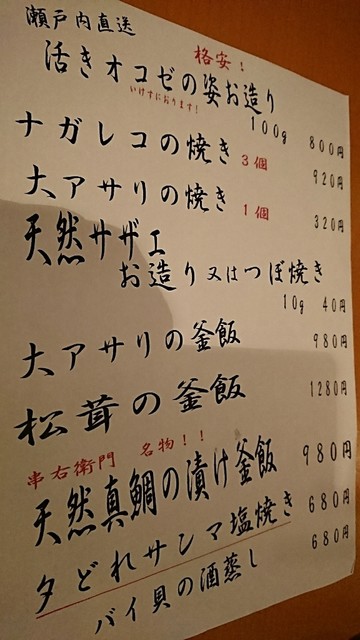 瀬戸内直送
格安！
活きオコゼの姿お造り
いけすにおります！
100g 800円
ナガレコの焼き 3個 920円
大アサリの焼き 1個 320円
天然サザエ
お造り又はつぼ焼き
10g 40円
大アサリの釜飯 980円
松茸の釜飯 1280円
串右衛門 名物！！
天然真鯛の漬け釜飯 980円
夕どれサンマ塩焼き 680円
バイ貝の酒蒸し 680円